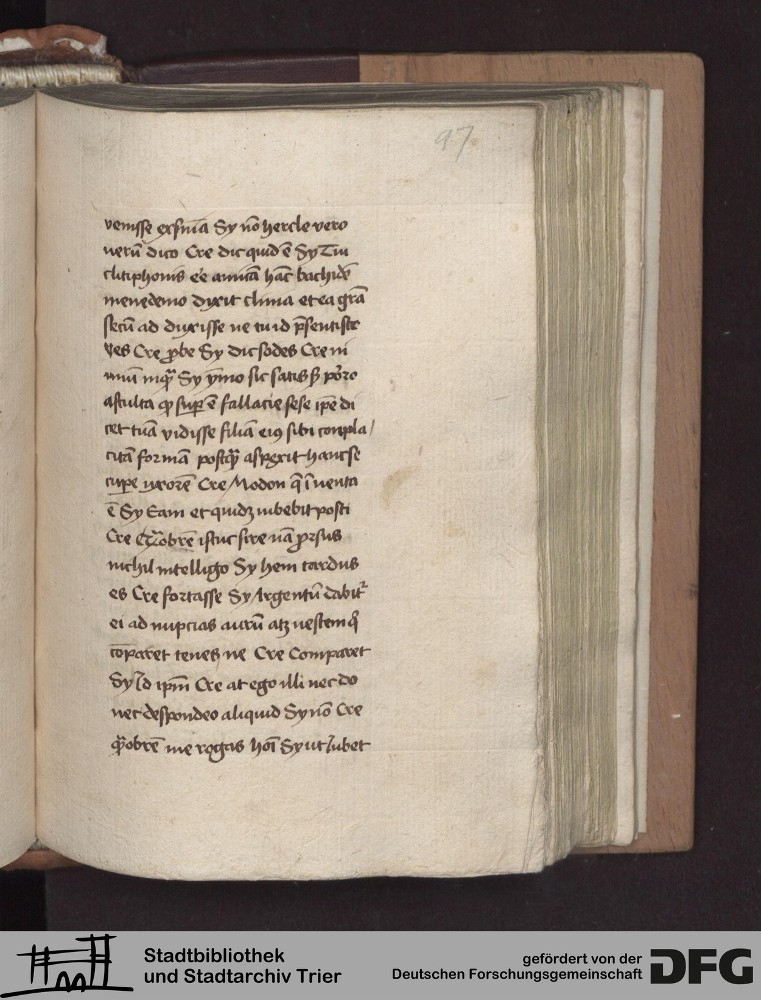 97
venisse existima Sy nō hercle vero
uerū dico Cre dic quid ē Sy Tui
clitiphonis eē amicā hāc bachidē
menedemo dixit clinia et ea grā
secū ad duxisse ne tu id p̄sentisce
res Cre ꝓbe Sy dic sodes Cre ni
miū inquā Sy ymo sic satis sꝫ poro
asculta qd sup ē fallacie sese ip̄e di
cet tuā vidisse filiā eiꝰ sibi conpla/
citā formā postꝙ̄ aspexit hanc se
cupe uxorē Cre Modon q̄ īuenta
ē Sy Eam et quidꝫ iubebit posci
Cre Quobrē istuc sire nā ꝓrsus
nichil intelligo Sy hem tardus
es Cre fortasse Sy Argentū dabit᷑
ei ad nupcias aurū atꝫ uestem q̄
cōparet tenes ne Cre Comparet
Sy Id ip̄m Cre at ego illi nec do
nec despondeo aliquid Sy nō Cre
Quobrē me rogas hoī Sy ut Iubet
Stadtbibliothek
und Stadtarchiv Trier
gefördert von der
Deutschen Forschungsgemeinschaft
DFG